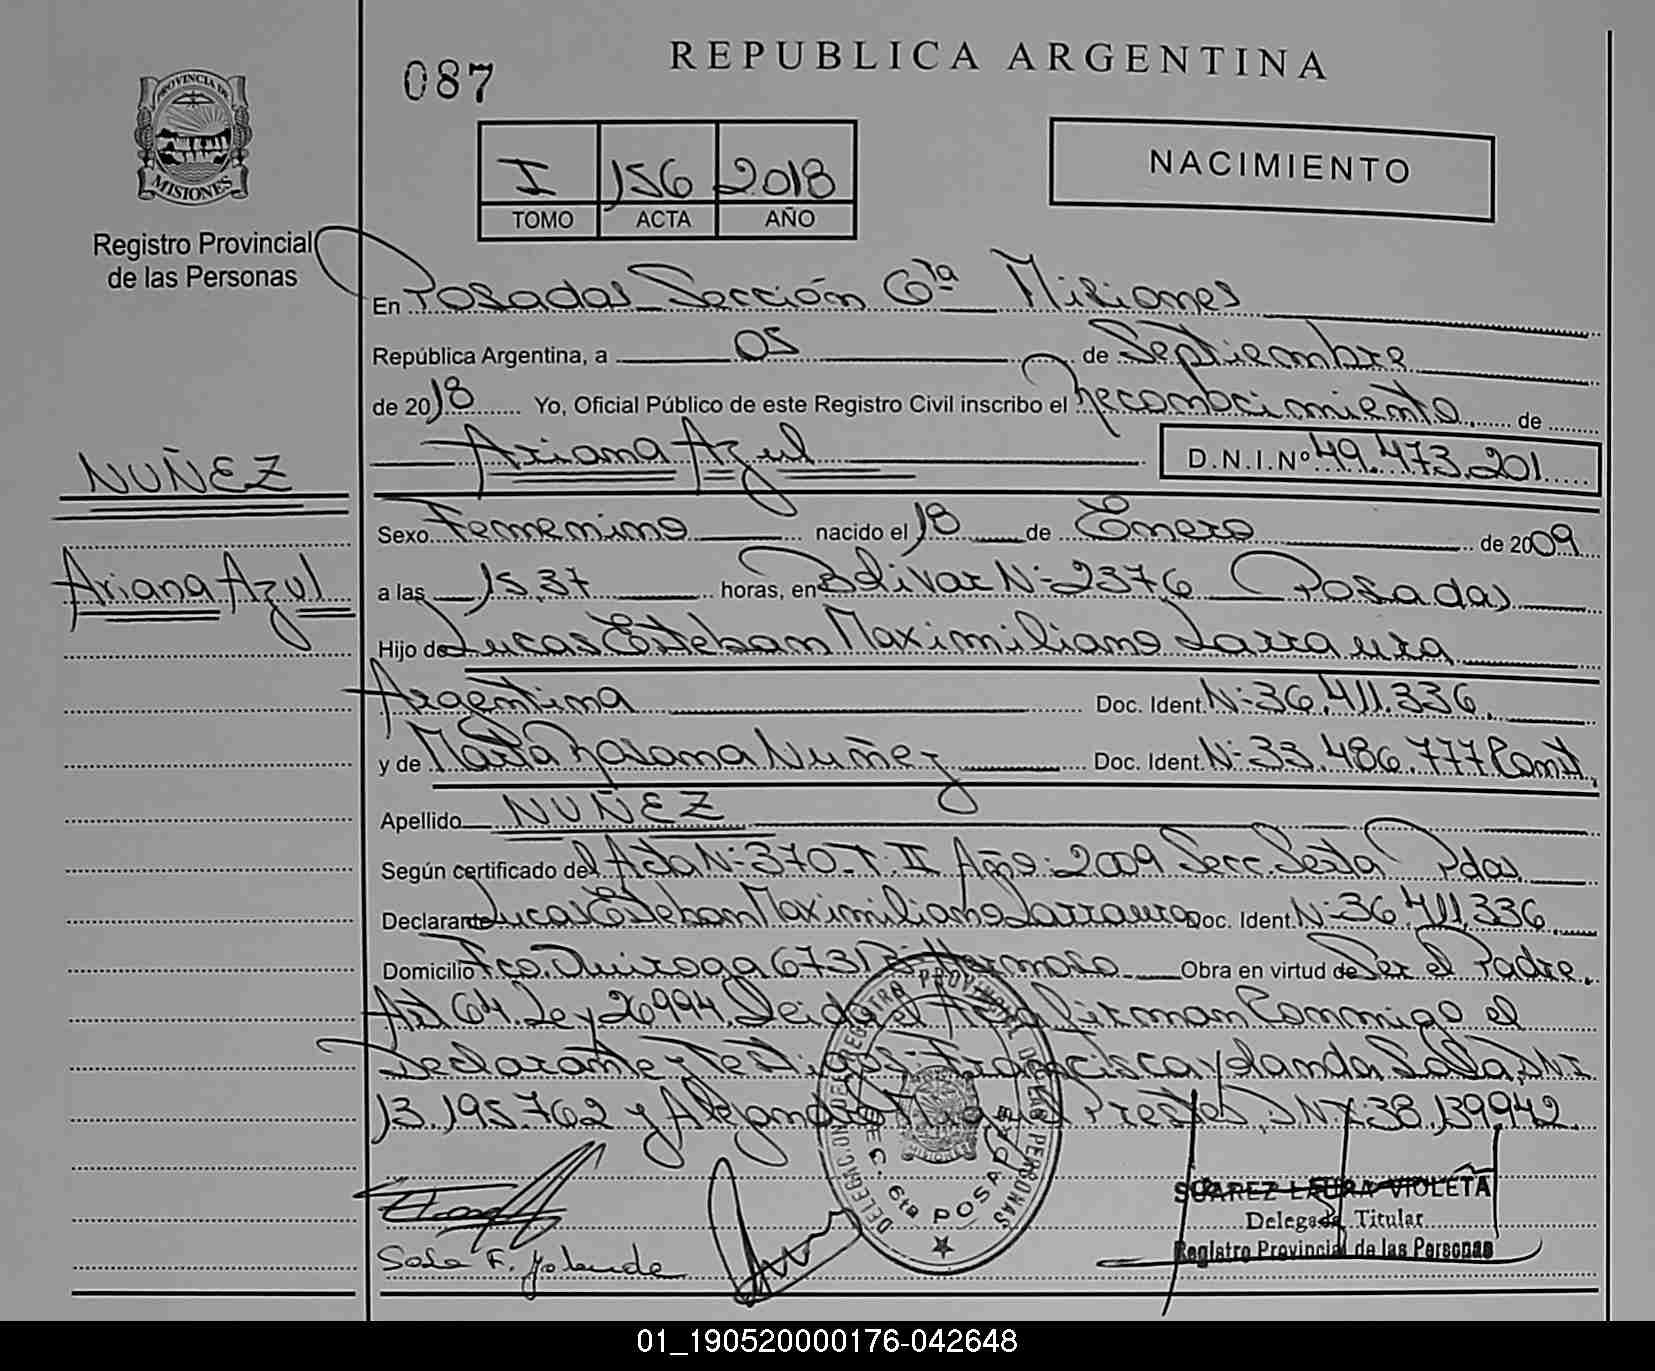 087
REPUBLICA ARGENTINA
PROVINCIA DE
MISIONES
Registro Provincial
de las Personas
I 156 2018
TOMO ACTA AÑO
NACIMIENTO
En Posadas Sección 6ta Misiones
República Argentina, a 05 de Septiembre
de 2018 Yo, Oficial Público de este Registro Civil inscribo el Reconocimiento de
Ariana Azul D.N.I.Nº 49.473.201
NUÑEZ
Ariana Azul
Sexo Femenino nacido el 18 de Enero de 2009
a las 15,37 horas, en Bolivar Nº 2376 Posadas
Hijo de Lucas Esteban Maximiliano Larraura
Argentina Doc. Ident. Nº 36.411.336
y de María Rosana Nuñez Doc. Ident. Nº 33.486.777
Apellido NUÑEZ
Según certificado del Acta Nº 370-T. II Año: 2009 Secc. Sexta Pdas
Declarante Lucas Esteban Maximiliano Larraura Doc. Ident. Nº 36.411.336
Domicilio Fco. Quiroga 6731 Bº Hermoso Obra en virtud de Ser el Padre,
Art 64. Ley 26994. Leida el Acta firman Conmigo el
Declarante y Testigos: Francisca Yolanda Sosa, DNI
13.195.762 y Prestes, DNI: 38.139942
DELEGACION DEL REGISTRO PROVINCIAL DE LAS PERSONAS
SEC. 6ta POSADAS
Sosa F. Yolanda
SUAREZ LAURA VIOLETA
Delegada Titular
Registro Provincial de las Personas
01_190520000176-042648